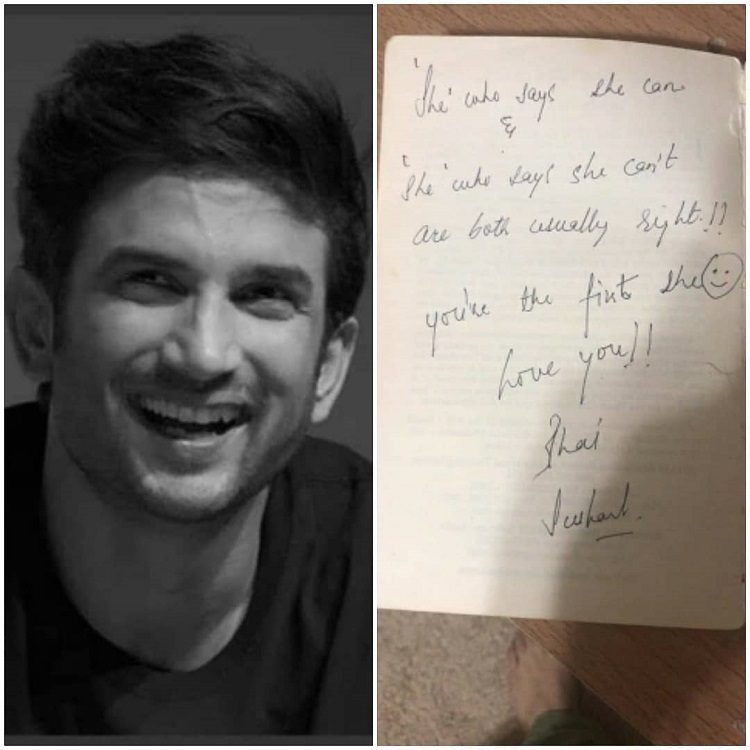 'She' who says she can
&
'She' who says she can't
are both usually right.!!
you're the first she
Love you!!
Bhai
Sushant.